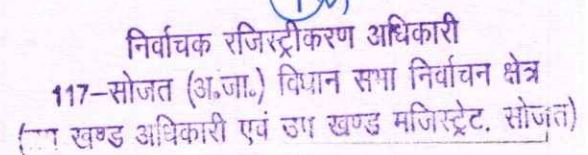 निर्वाचक रजिस्ट्रीकरण अधिकारी
117-सोजत (अ.जा.) विधान सभा निर्वाचन क्षेत्र
खण्ड अधिकारी एवं उप खण्ड मजिस्ट्रेट. सोजत)